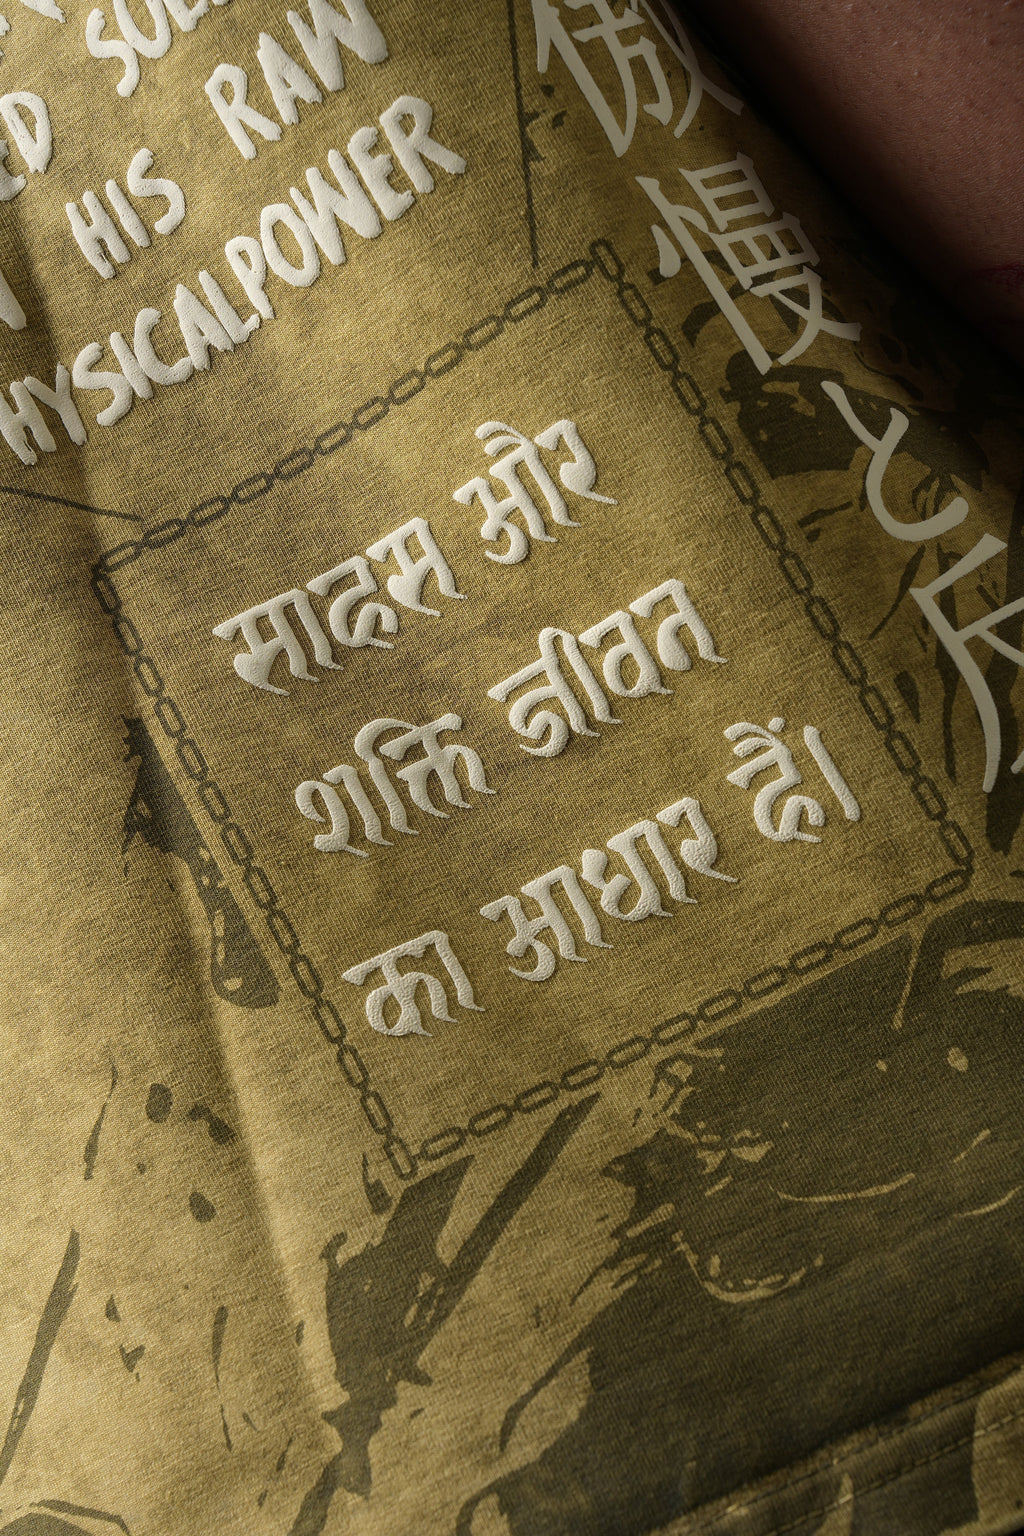 ED SOL
HIS RAW
HYSICALPOWER
साहस और
शक्ति जीवन
का आधार हैं।
傲慢と